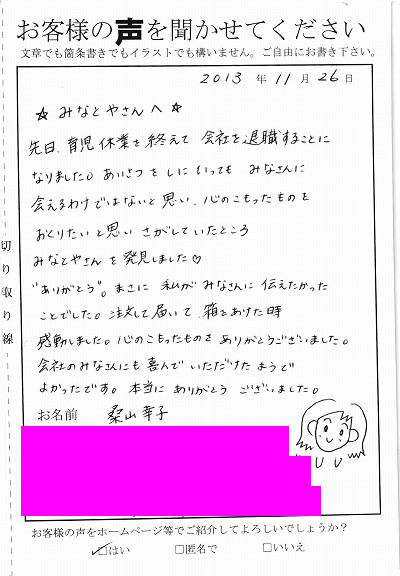 お客様の声を聞かせてください
文章でも箇条書きでもイラストでも構いません。ご自由にお書き下さい。
2013 年 11 月 26 日
☆みなとやさんへ☆
先日、育児休業を終えて 会社を退職することに
なりました。あいさつをしにいっても みなさんに
会えるわけではないと思い、心のこもったものを
おくりたいと思い さがしていたところ
みなとやさんを発見しました♡
"ありがとう"。まさに 私がみなさんに伝えたかった
ことでした。注文して届いて、箱をあけた時
感動しました。心のこもったものを ありがとうございました。
会社のみなさんにも喜んでいただけたようで
よかったです。本当に ありがとう ございました。
お名前 桑山幸子
お客様の声をホームページ等でご紹介してよろしいでしょうか？
☑はい □匿名で □いいえ
切り取り線